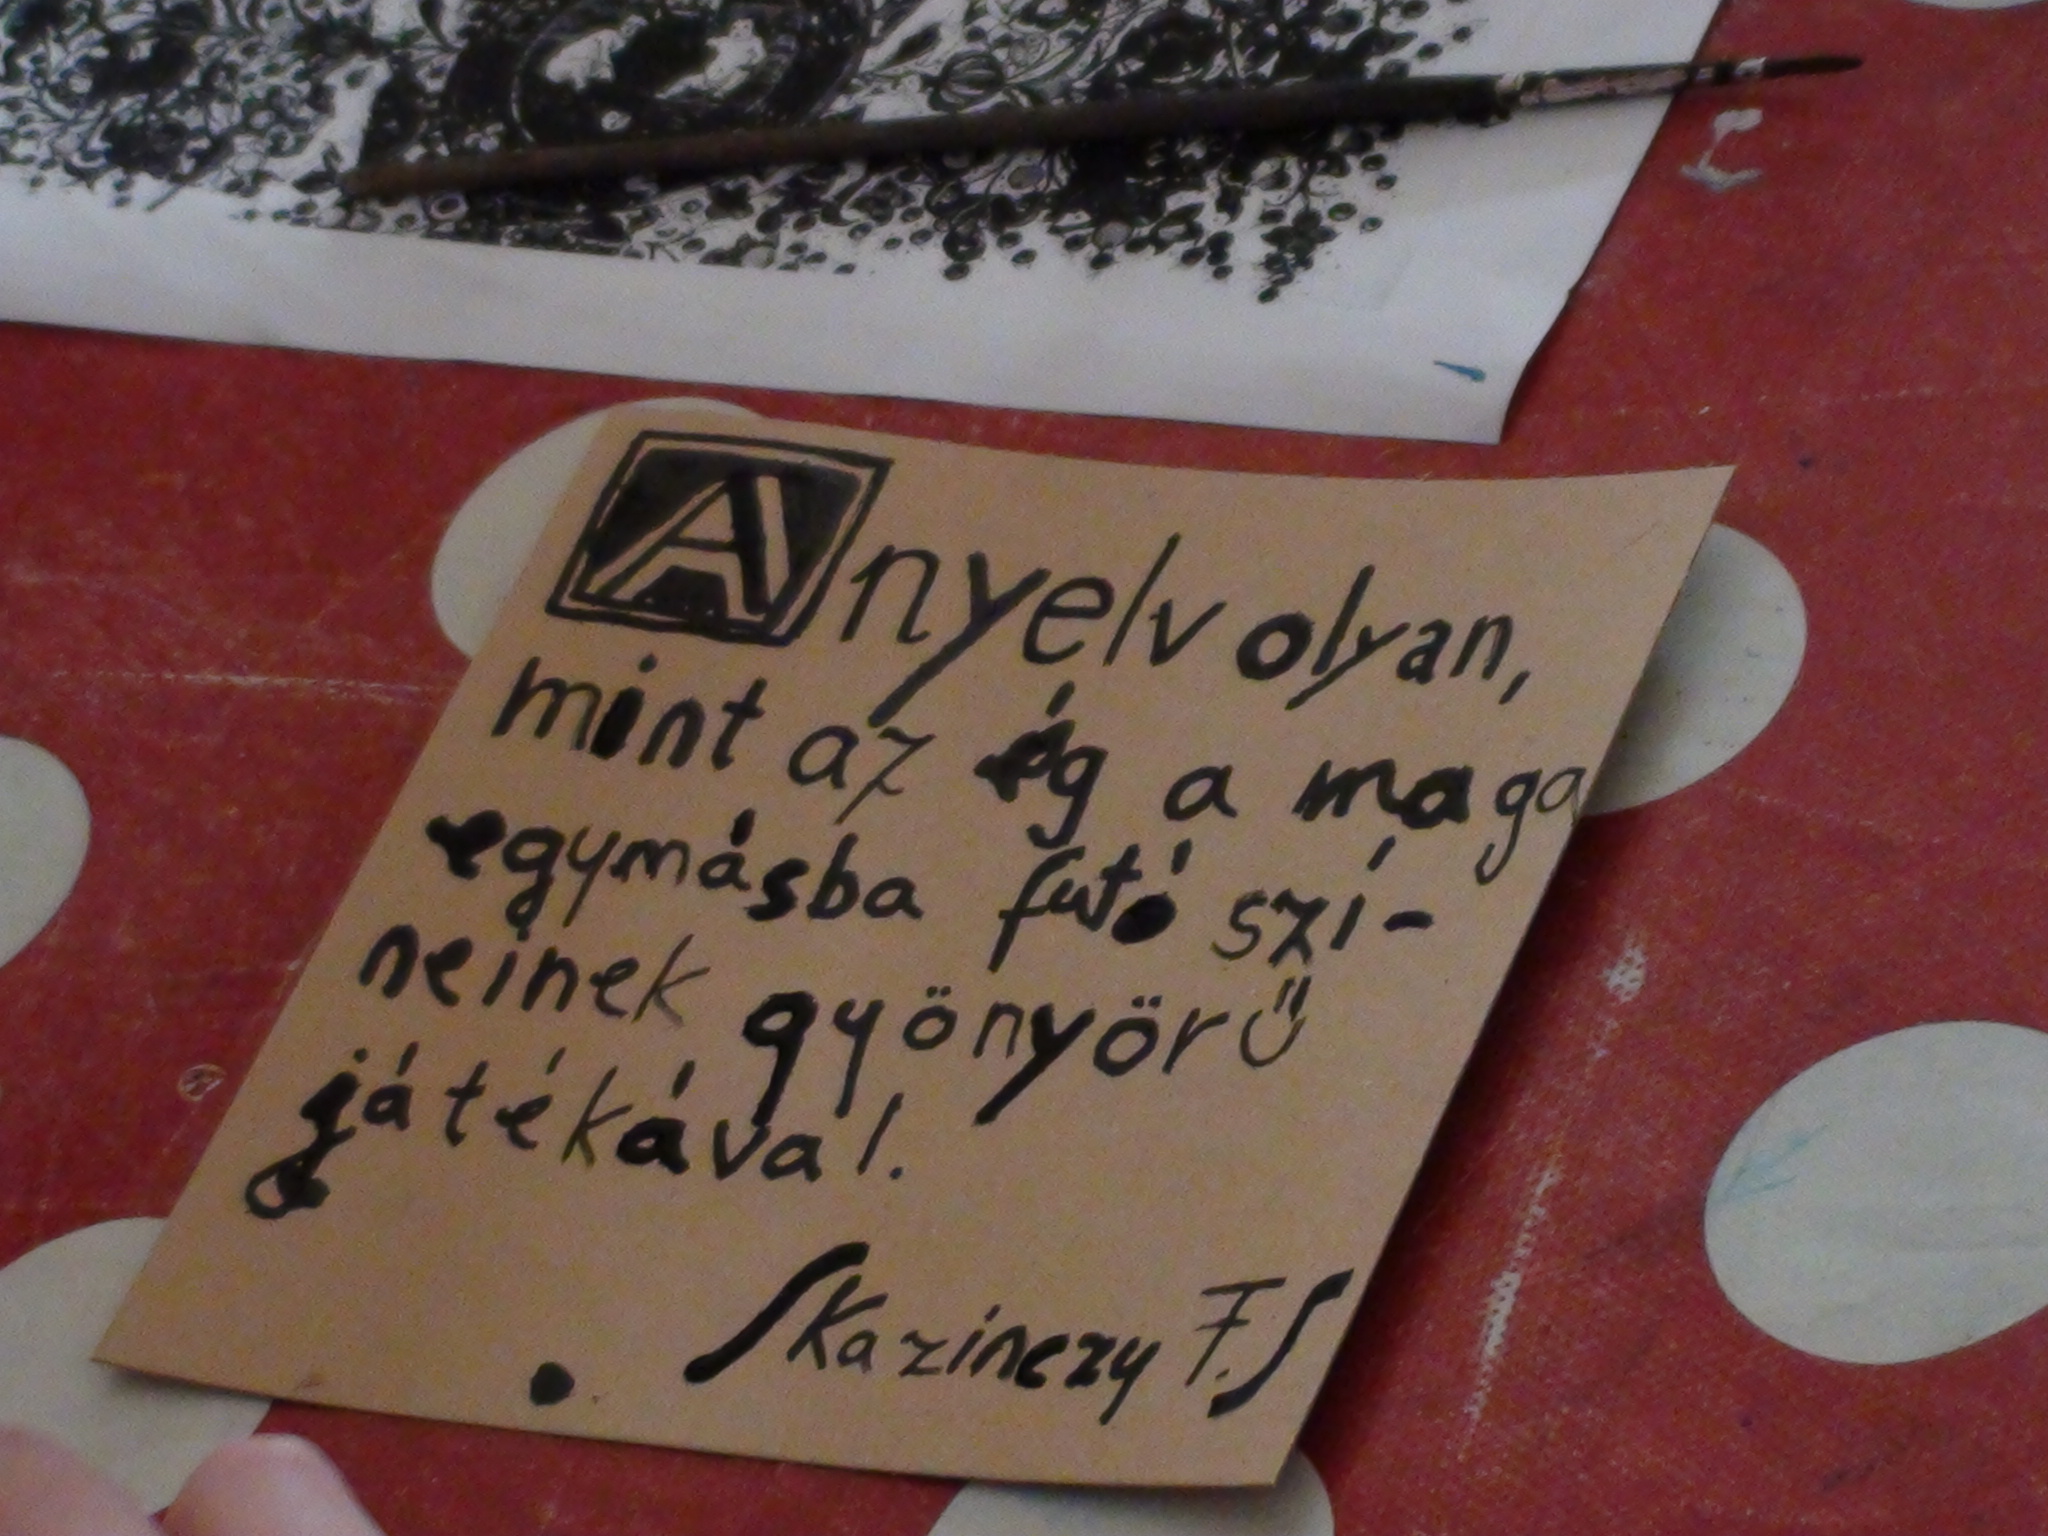 A nyelv olyan,
mint az ég a maga
egymásba futó szí-
neinek gyönyörű
játékával.
/Kazinczy F./